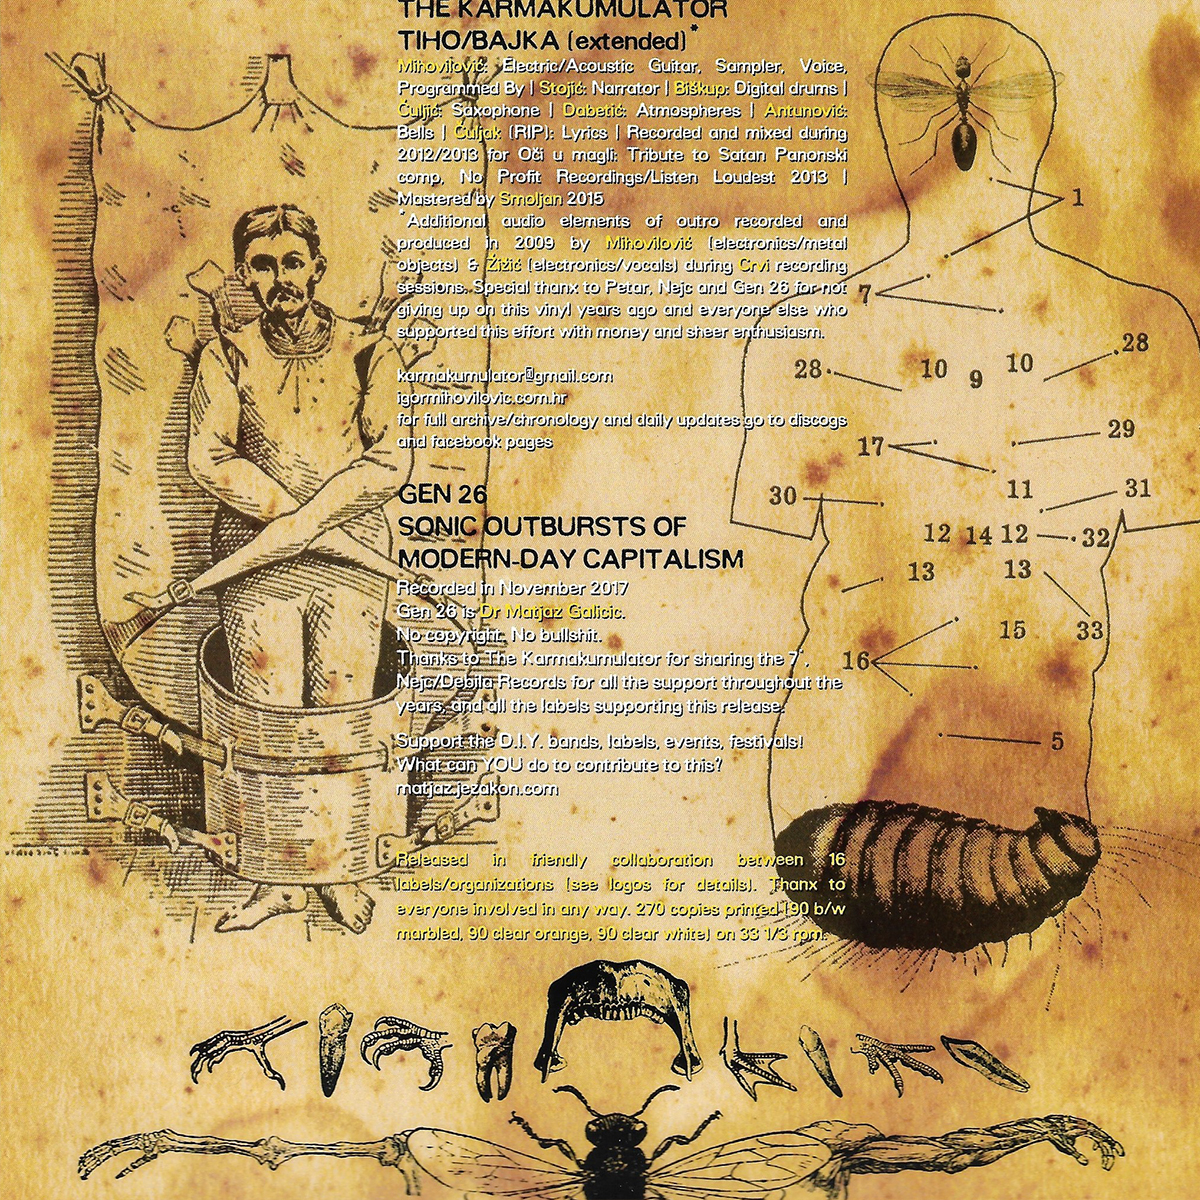 THE KARMAKUMULATOR
TIHO/BAJKA (extended)*
Mihovilović: Electric/Acoustic Guitar, Sampler, Voice,
Programmed By | Stojić: Narrator | Biškup: Digital drums |
Čuljić: Saxophone | Dabetić: Atmospheres | Antunović:
Bells | Čuljak (RIP): Lyrics | Recorded and mixed during
2012/2013 for Oči u magli: Tribute to Satan Panonski
comp, No Profit Recordings/Listen Loudest 2013 |
Mastered by Smoljan 2015
*Additional audio elements of outro recorded and
produced in 2009 by Mihovilović (electronics/metal
objects) & Žižić (electronics/vocals) during Crvi recording
sessions. Special thanx to Petar, Nejc and Gen 26 for not
giving up on this vinyl years ago and everyone else who
supported this effort with money and sheer enthusiasm.
karmakumulator@gmail.com
igormihovilovic.com.hr
for full archive/chronology and daily updates go to discogs
and facebook pages
GEN 26
SONIC OUTBURSTS OF
MODERN-DAY CAPITALISM
Recorded in November 2017
Gen 26 is Dr Matjaz Galicic.
No copyright. No bullshit.
Thanks to The Karmakumulator for sharing the 7",
Nejc/Debila Records for all the support throughout the
years, and all the labels supporting this release.
Support the D.I.Y. bands, labels, events, festivals!
What can YOU do to contribute to this?
matjaz.jezakon.com
Released in friendly collaboration between 16
labels/organizations (see logos for details). Thanx to
everyone involved in any way. 270 copies printed (90 b/w
marbled, 90 clear orange, 90 clear white) on 33 1/3 rpm.
1
7
28 10 9 10 28
17 29
30 11 31
12 14 12 32
13 13
15 33
16
5